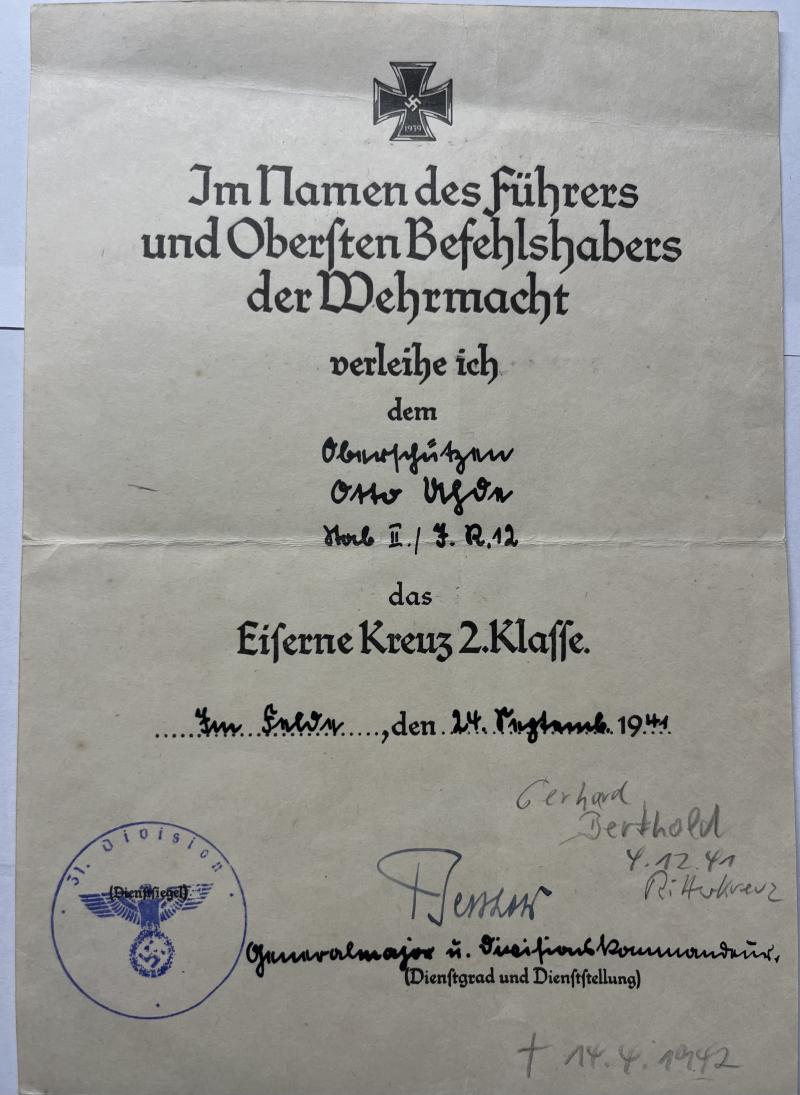 1939
Im Namen des Führers
und Oberſten Befehlshabers
der Wehrmacht
verleihe ich
dem
Oberschützen
Otto Uhde
Stab II./ J. R. 12
das
Eiſerne Kreuz 2. Klaſſe.
Im Felde, den 24. Septemb. 1941
Gerhard
Berthold
4.12.41
Ritterkreuz
31. Division
(Dienſtſiegel)
Berthold
Generalmajor u. Divisionskommandeur.
(Dienſtgrad und Dienſtſtellung)
† 14.4.1942